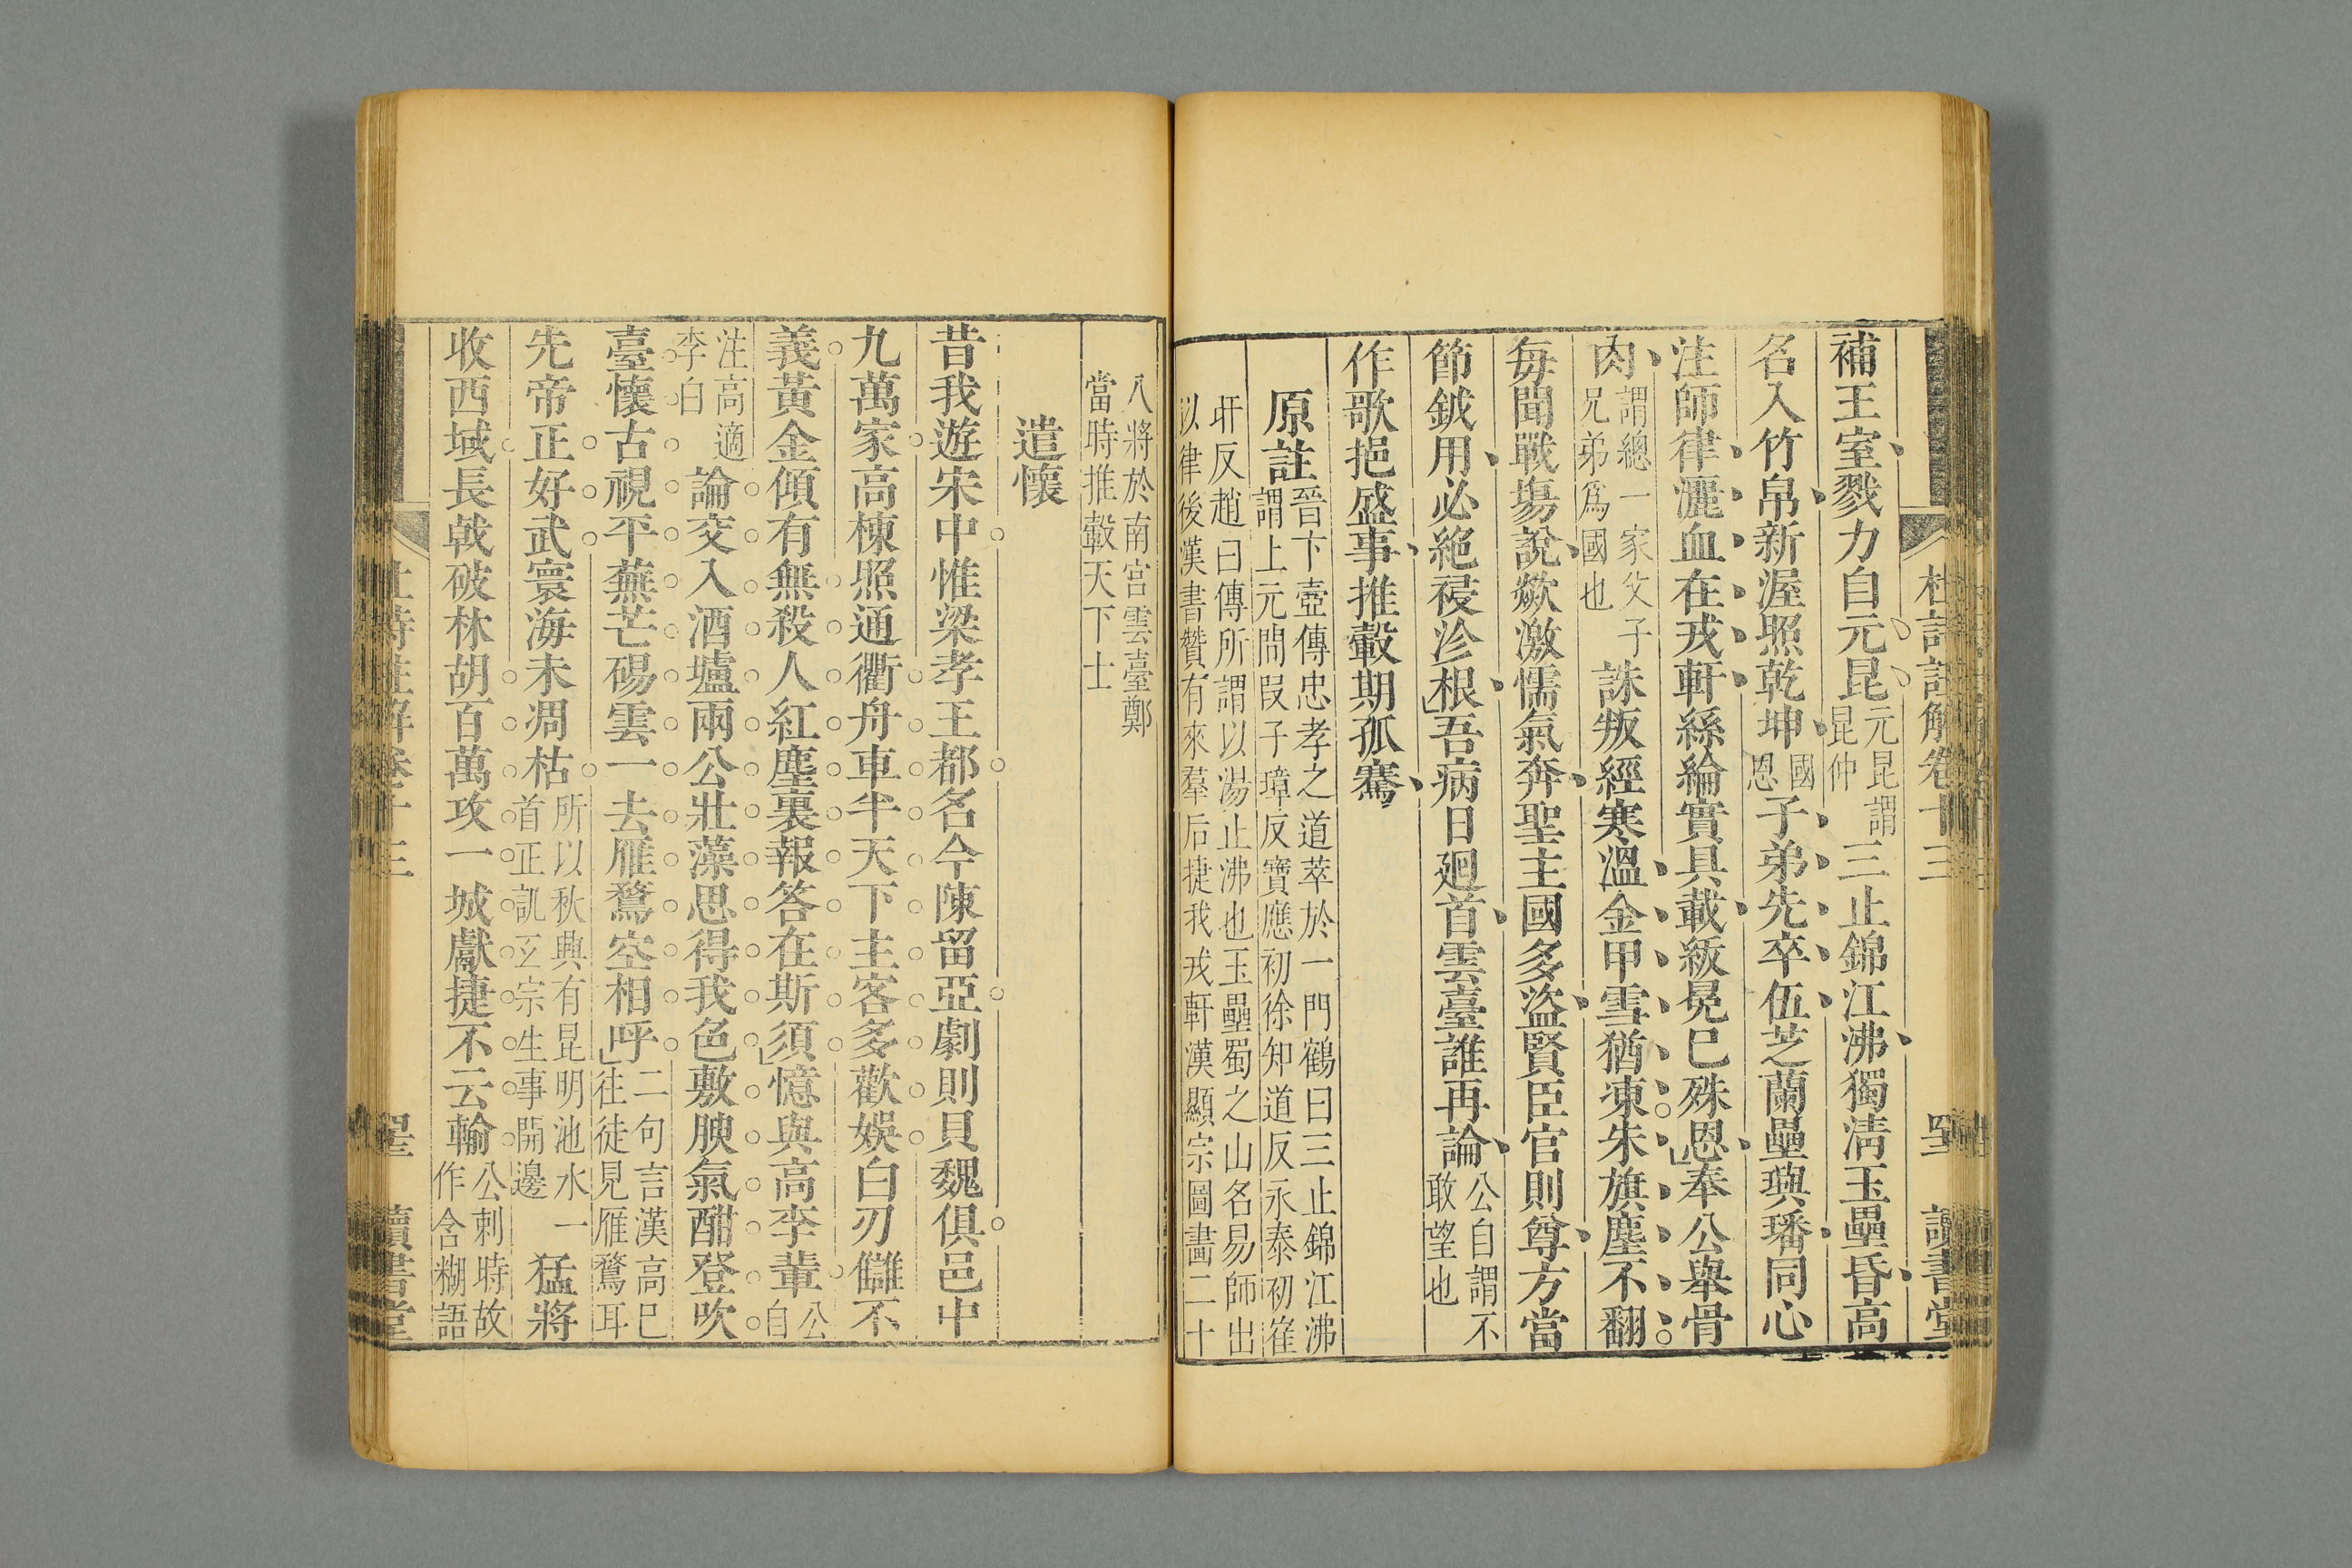 杜詩註解卷十三 讀書堂
補王室戮力自元昆元昆謂昆仲三止錦江沸獨淸玉壘昏高
名入竹帛新渥照乾坤國恩子弟先卒伍芝蘭壘璵璠同心
注師律灑血在戎軒絲綸實具載紱冕已殊恩奉公舉骨
肉謂總一家父子兄弟爲國也誅叛經寒溫金甲雪猶凍朱旗塵不翻
每聞戰塲說欻激懦氣奔聖主國多盜賢臣官則尊方當
節鉞用必絕祲沴根吾病日廻首雲臺誰再論公自謂不敢望也
作歌挹盛事推轂期孤騫
原註晉卞壼傳忠孝之道萃於一門鶴曰三止錦江沸謂上元間段子璋反寶應初徐知道反永泰初崔
旰反趙曰傳所謂以湯止沸也玉壘蜀之山名易師出以律後漢書贊有來羣后捷我戎軒漢顯宗圖畫二十
八將於南宮雲臺鄭當時推轂天下士
遣懷
昔我遊宋中惟梁孝王都名今陳留亞劇則貝魏俱邑中
九萬家高棟照通衢舟車半天下主客多歡娛白刃讎不
義黃金傾有無殺人紅塵裏報答在斯須憶與高李輩公自
注高適李白論交入酒壚兩公壯藻思得我色敷腴氣酣登吹
臺懷古視平蕪芒碭雲一去雁鶩空相呼二句言漢高已往徒見雁鶩耳
先帝正好武寰海未凋枯所以秋興有昆明池水一首正訊玄宗生事開邊猛將
收西域長戟破林胡百萬攻一城獻捷不云輸公刺時故作含糊語
杜詩註解卷十三 讀書堂